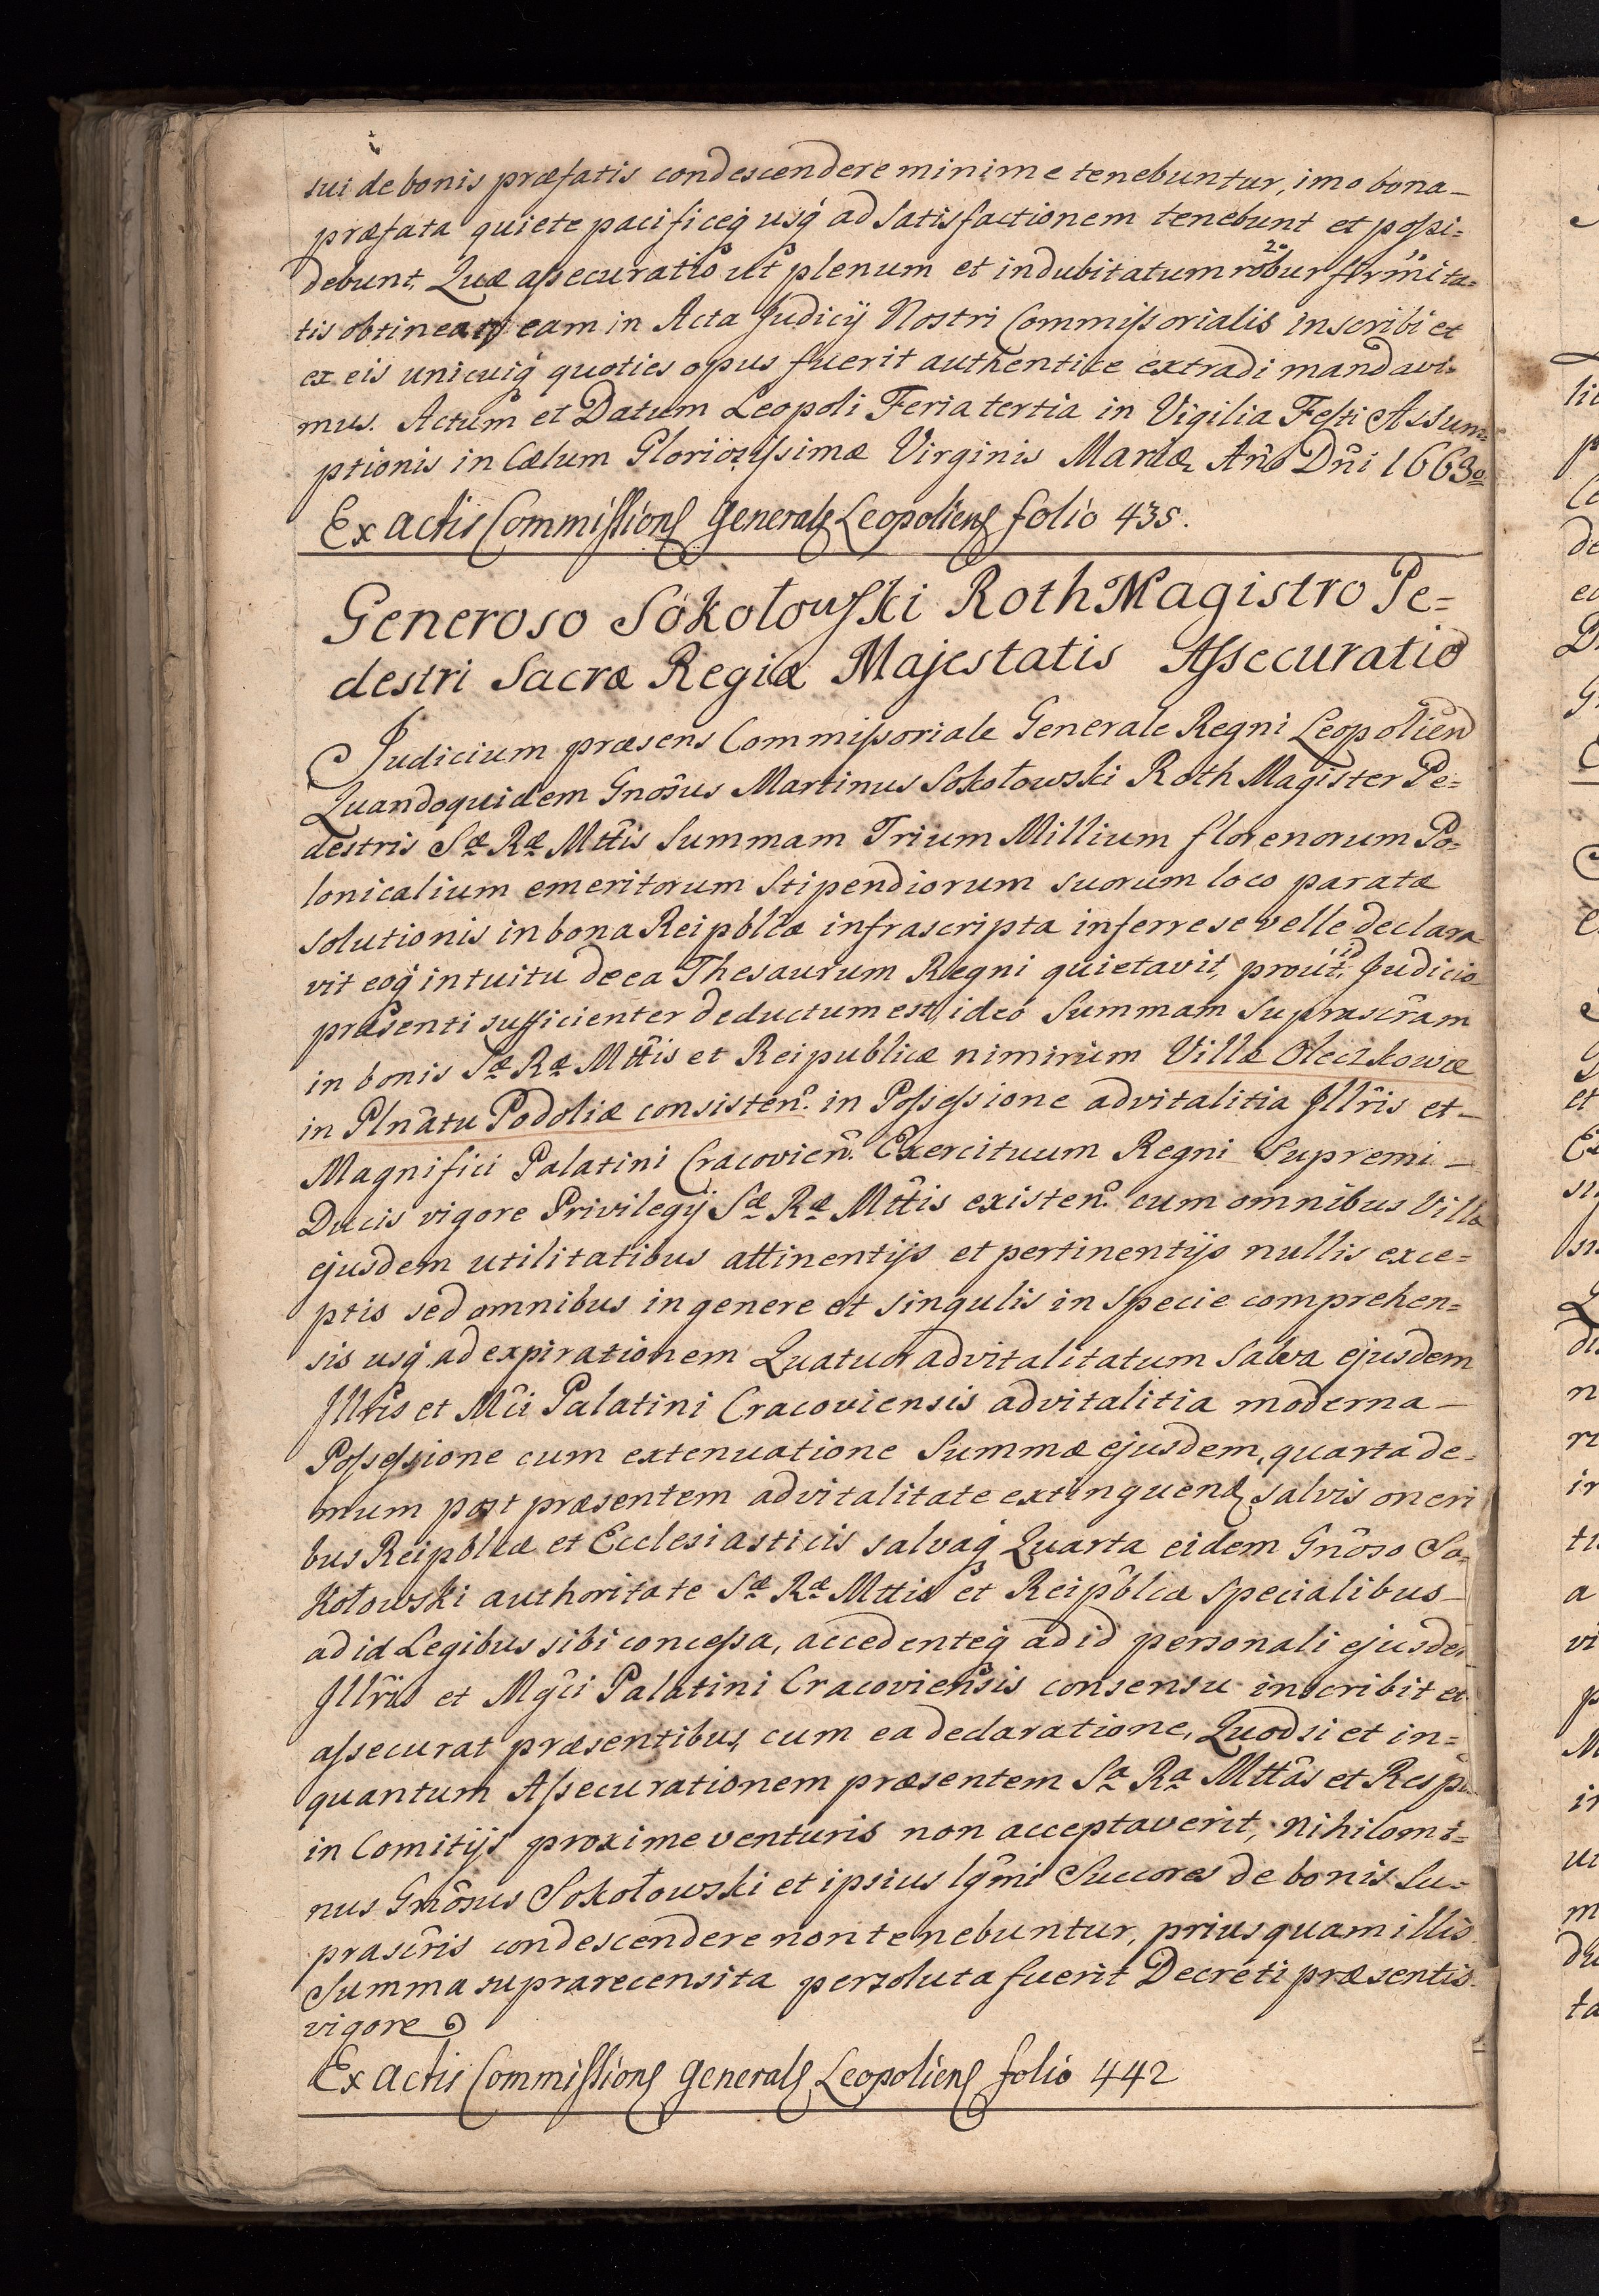 sui de bonis præfatis condescendere minime tenebuntur, imo bona_
præfata quiete pacificeq́ usq́ ad satisfactionem tenebunt et possi=
debunt. Quæ assecuratio ut plenum et indubitatum robur firmita=
tis obtineat eam in Acta Judicij Nostri Commissorialis inscribi et
ex eis unicuiq́ quoties opus fuerit authentice extradi mandavi=
mus. Actum et Datum Leopoli Feria tertia in Vigilia Festi Assum=
ptionis in Cælum Gloriosissimæ Virginis Mariæ Año Dñi 1663o
Ex actis Commissionis Generalis Leopoliens folio 435.
Generoso Sokołowski RothMagistro Pe=
destri Sacræ Regiæ Majestatis Assecuratio
Judicium præsens Commissoriale Generale Regni Leopolien
Quandoquidem Gnosus Martinus Sokołowski RothMagister Pe=
destris Sæ Ræ Mttis Summam Trium Millium florenorum Po=
lonicalium emeritorum Stipendiorum suorum loco paratæ
solutionis in bona Reipblcæ infrascripta inferre se velle declara
vit eoq́ intuitu de ea Thesaurum Regni quietavit, prout id Judicio
præsenti sufficienter deductum est, ideó Summam Suprascram
in bonis Sæ Ræ Mttis et Reipublicæ nimirum Villæ Oleczkowæ
in Plnatu Podoliæ consisten. in Possessione advitalitia Jllris et_
Magnifici Palatini Cracovien. Exercituum Regni Supremi_
Ducis vigore Privilegij Sæ Ræ Mttis existen. cum omnibus Villæ
ejusdem utilitatibus attinentijs et pertinentijs nullis exce=
ptis sed omnibus in genere et singulis in specie comprehen=
sis usq́ ad expirationem Quatuor advitalitatum Salva ejusdem
Jllris et Mci Palatini Cracoviensis advitalitia moderna_
Possessione cum extenuatione Summæ ejusdem, quarta de=
mum post præsentem advitalitate extinguend salvis oneri
bus Reipblcæ et Ecclesiasticis salvaq́ Quarta eidem Gnoso So=
kołowski authoritate Sæ Ræ Mttis et Reipblcæ specialibus_
ad id Legibus sibi concessa, accedenteq́ ad id personali ejusdem
Jllris et Mgci Palatini Cracoviensis consensu inscribit et
assecurat præsentibus, cum ea declaratione, Quod si et in=
quantum Assecurationem præsentem Sa Ra Mttas et Resp
in Comitijs proxime venturis non acceptaverit, nihilomi=
nus Gnosus Sokołowski et ipsius lgmi Succores de bonis Su=
prascris condescendere non tenebuntur, priusquam illis
Summa suprarecensita persoluta fuerit Decreti præsentis
vigore
Ex actis Commissionis Generalis Leopoliens folio 442